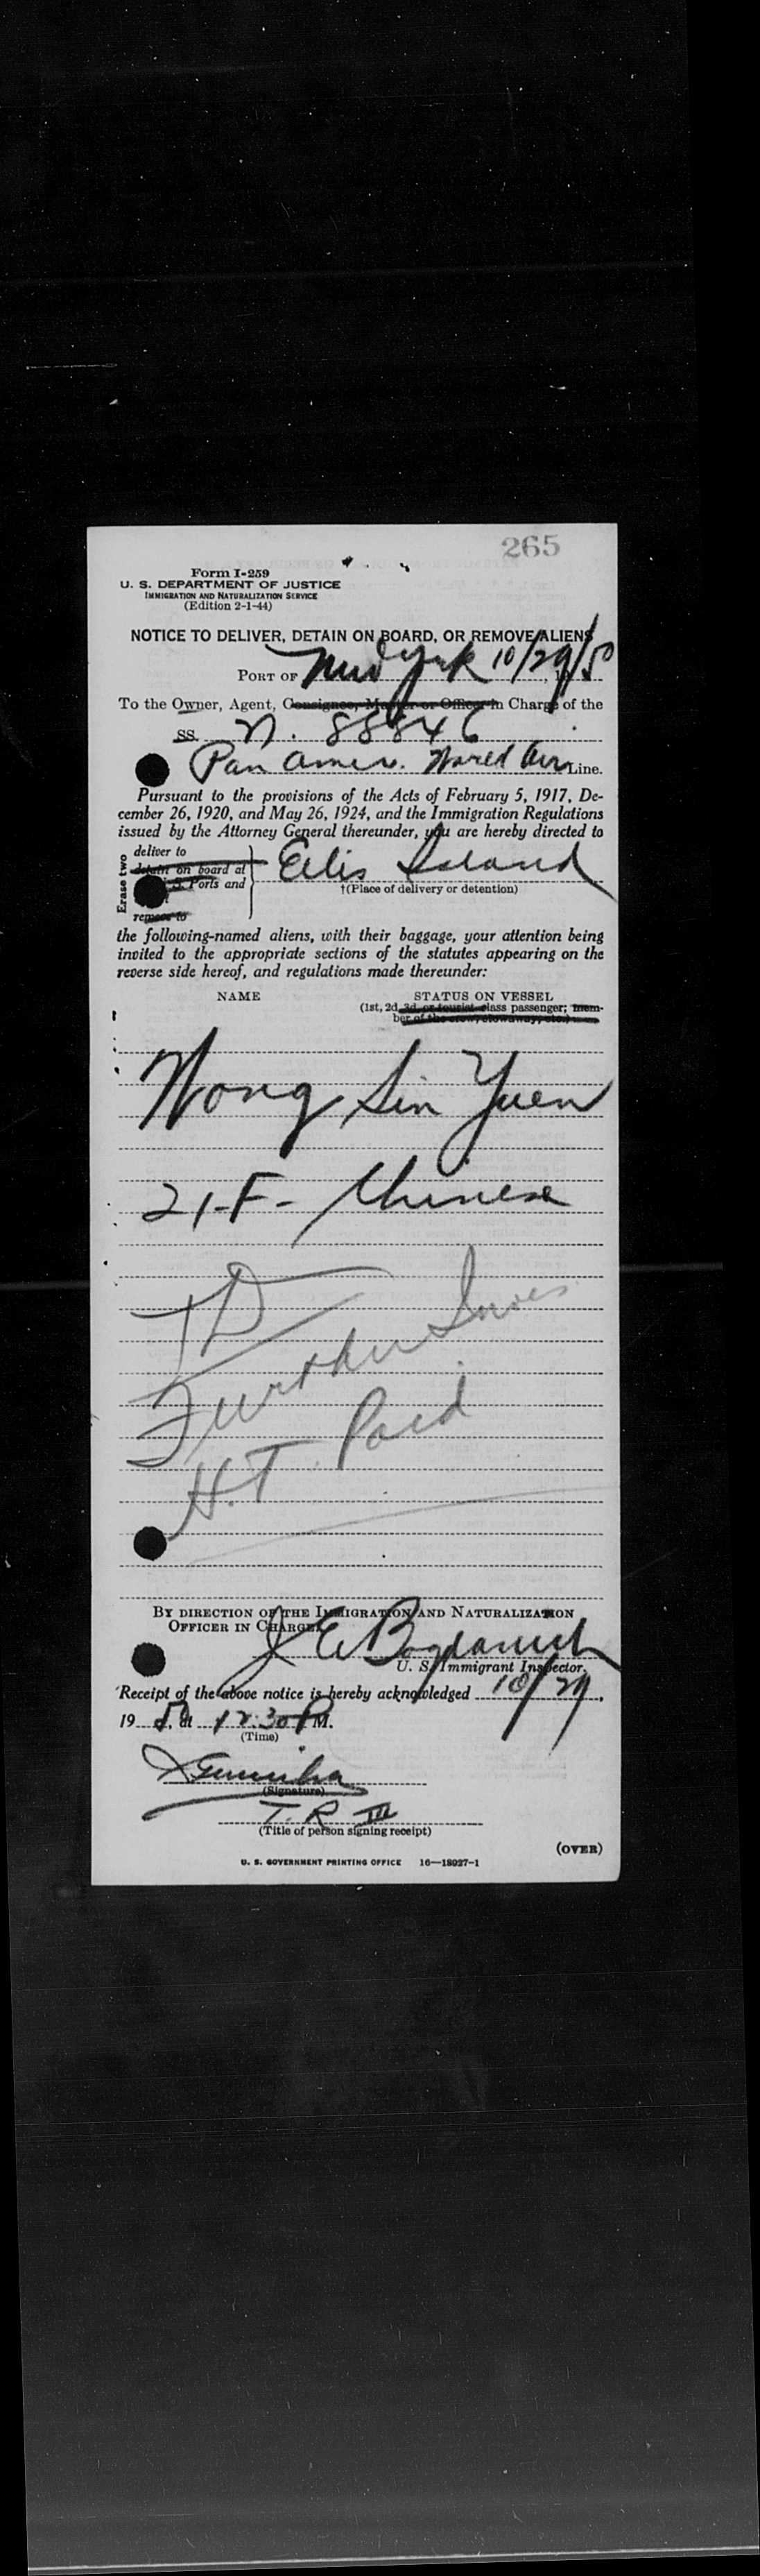 265
Form I-259
U. S. DEPARTMENT OF JUSTICE
IMMIGRATION AND NATURALIZATION SERVICE
(Edition 2-1-44)
NOTICE TO DELIVER, DETAIN ON BOARD, OR REMOVE ALIENS
PORT OF New York 10/29/50
To the Owner, Agent, Consignee, Master or Officer in Charge of the
SS. N. 88846
Pan Amer. World Air Line.
Pursuant to the provisions of the Acts of February 5, 1917, De-
cember 26, 1920, and May 26, 1924, and the Immigration Regulations
issued by the Attorney General thereunder, you are hereby directed to
Erase two
deliver to
detain on board at
Ports and
remove to
Ellis Island
†(Place of delivery or detention)
the following-named aliens, with their baggage, your attention being
invited to the appropriate sections of the statutes appearing on the
reverse side hereof, and regulations made thereunder:
NAME STATUS ON VESSEL
(1st, 2d, 3d, or tourist class passenger; mem-
ber of the crew, stowaway, etc.)
Wong Sin Yuen
21-F- Chinese
TD
Further Inves
H.T. Paid
BY DIRECTION OF THE IMMIGRATION AND NATURALIZATION
OFFICER IN CHARGE
J E
U. S. Immigrant Inspector.
Receipt of the above notice is hereby acknowledged 10/29,
1950, at 12:30 P M.
(Time)
(Signature)
T. R III
(Title of person signing receipt)
(OVER)
U. S. GOVERNMENT PRINTING OFFICE 16—18027-1